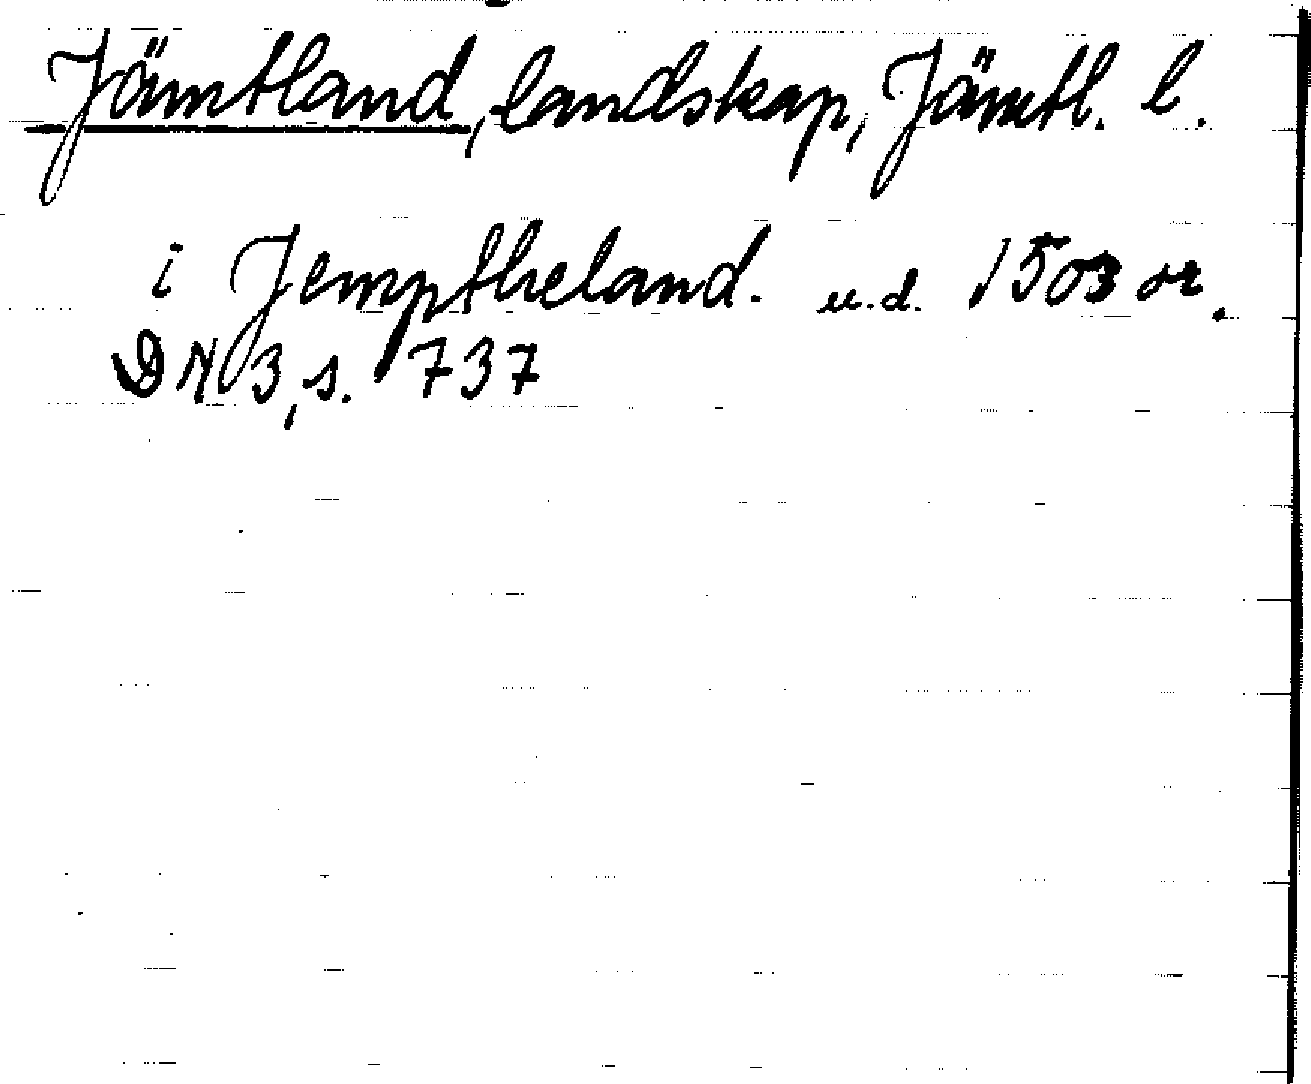 Jämtland, landskap, Jämtl. l.
i Jemptheland. u.d. 1503 or.
DN 3, s. 737